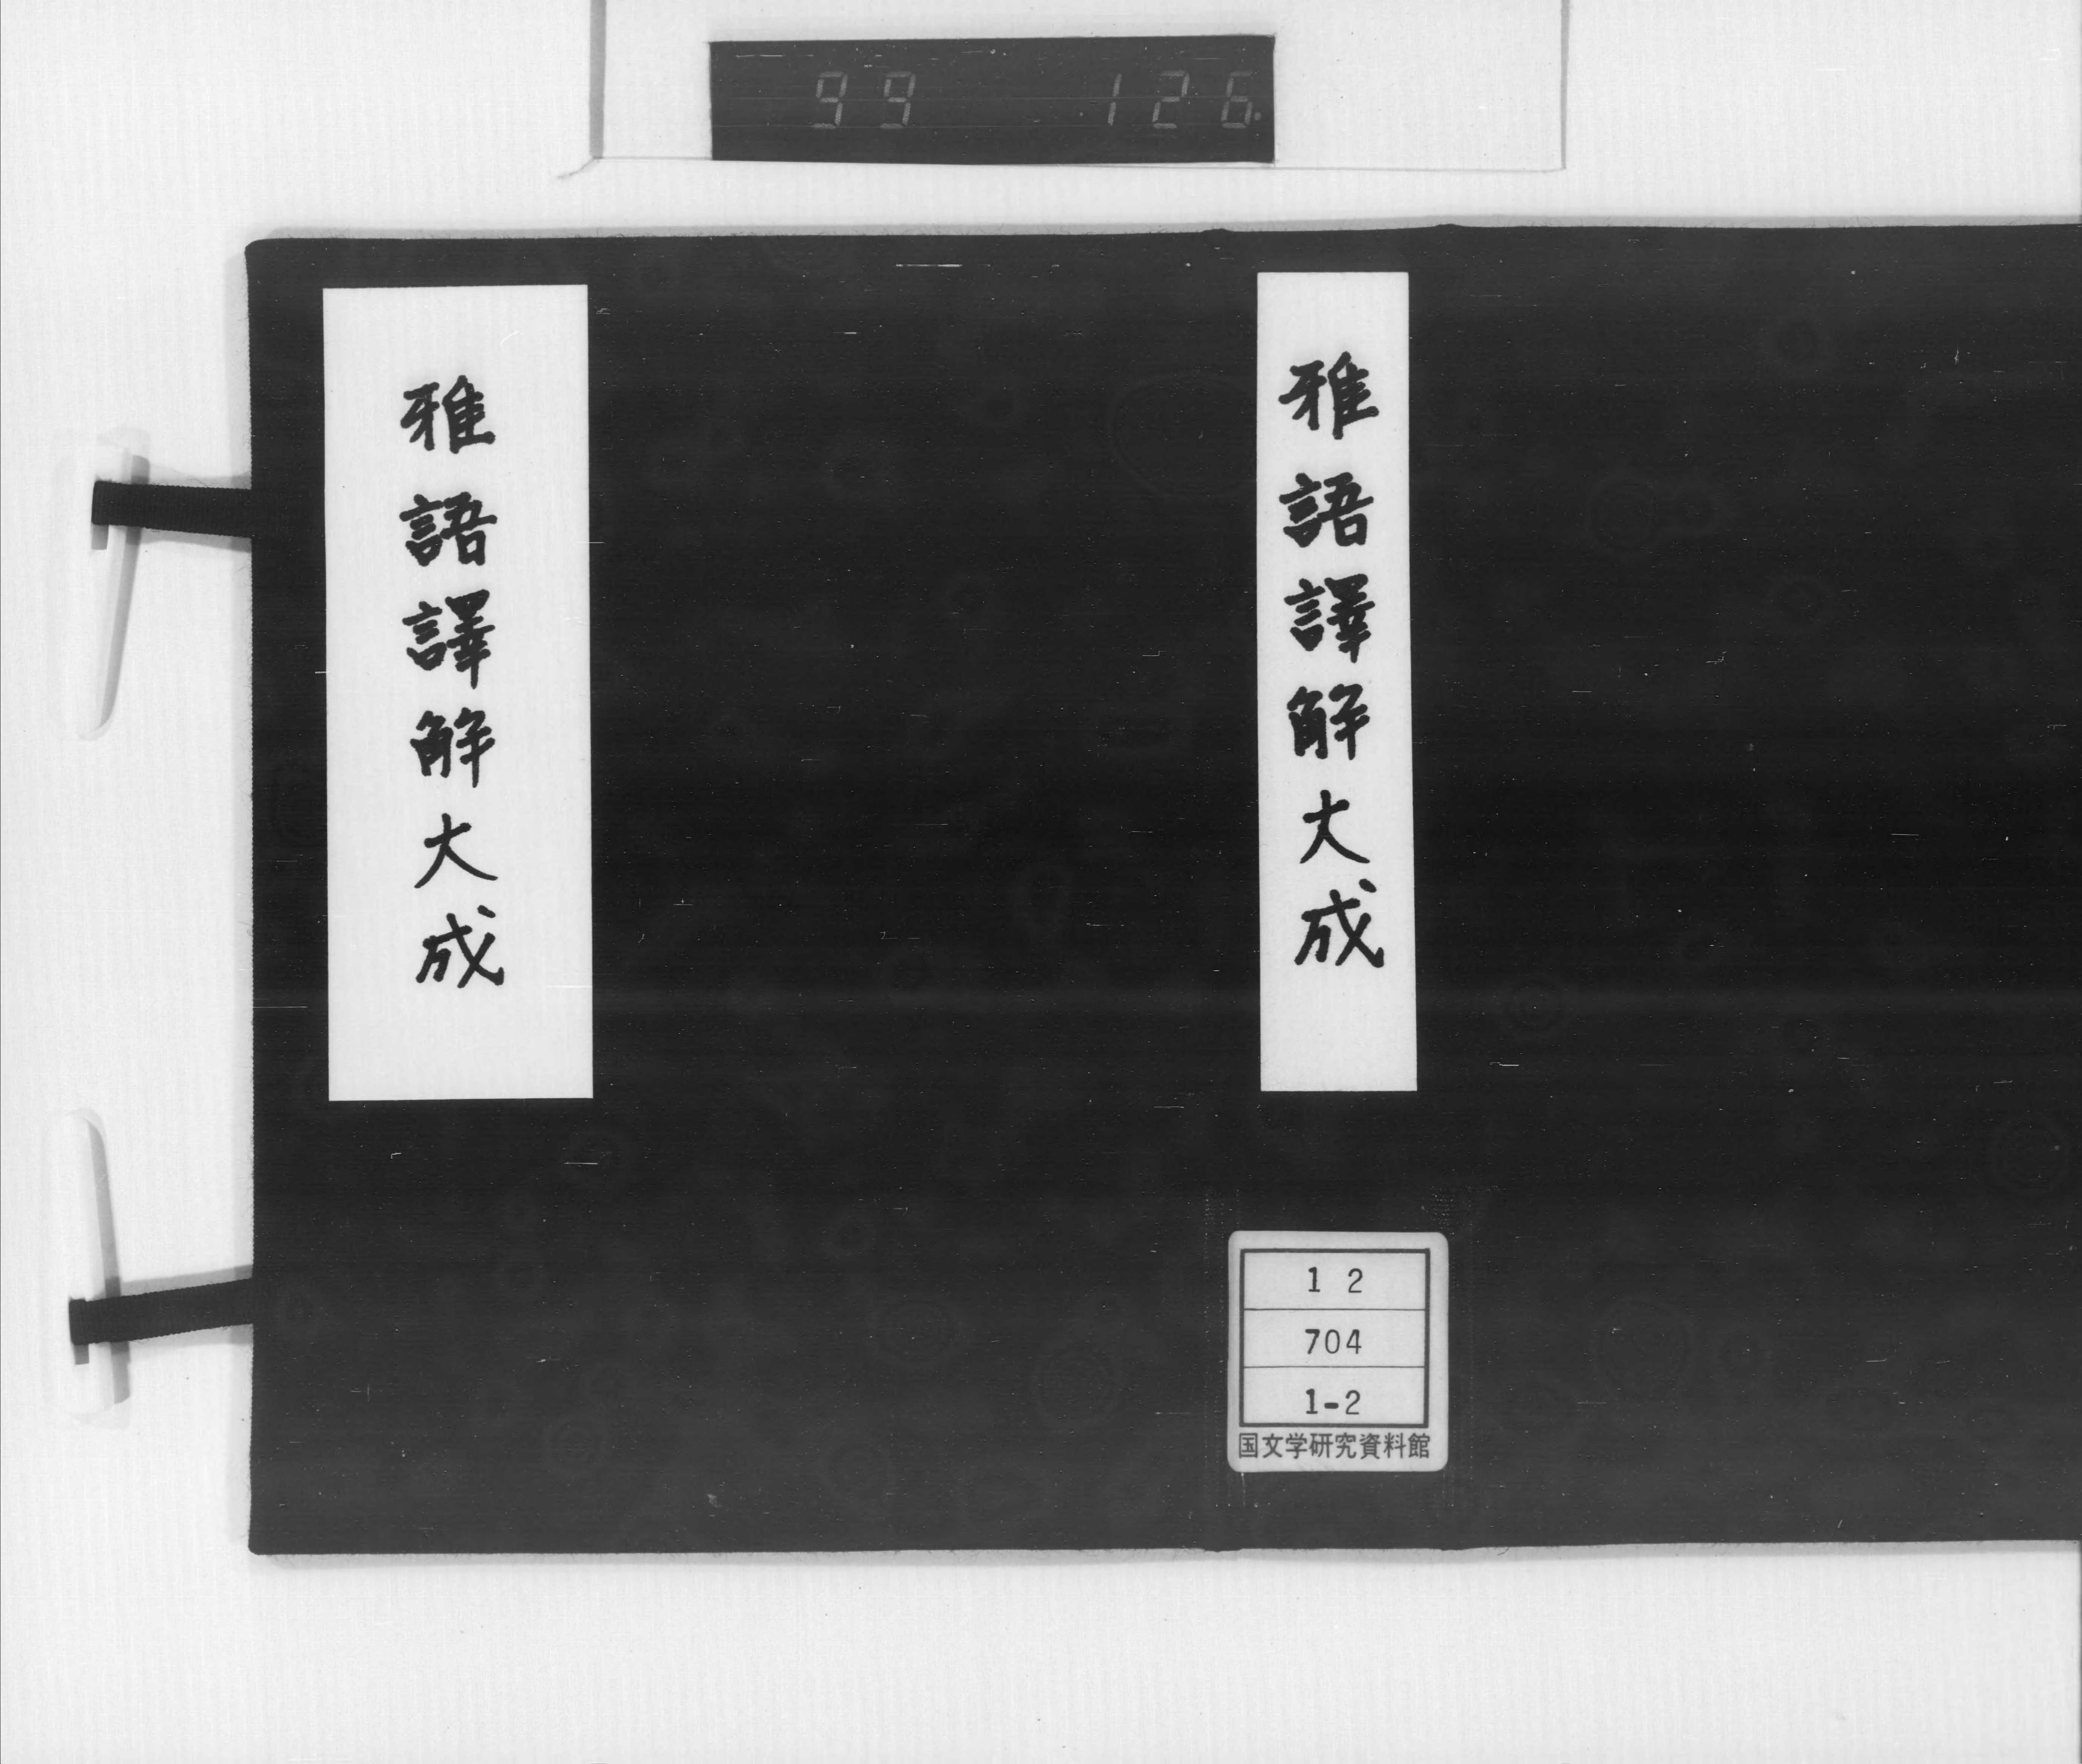 99 126
雅語譯解大成
雅語譯解大成
12
704
1-2
国文学研究資料館